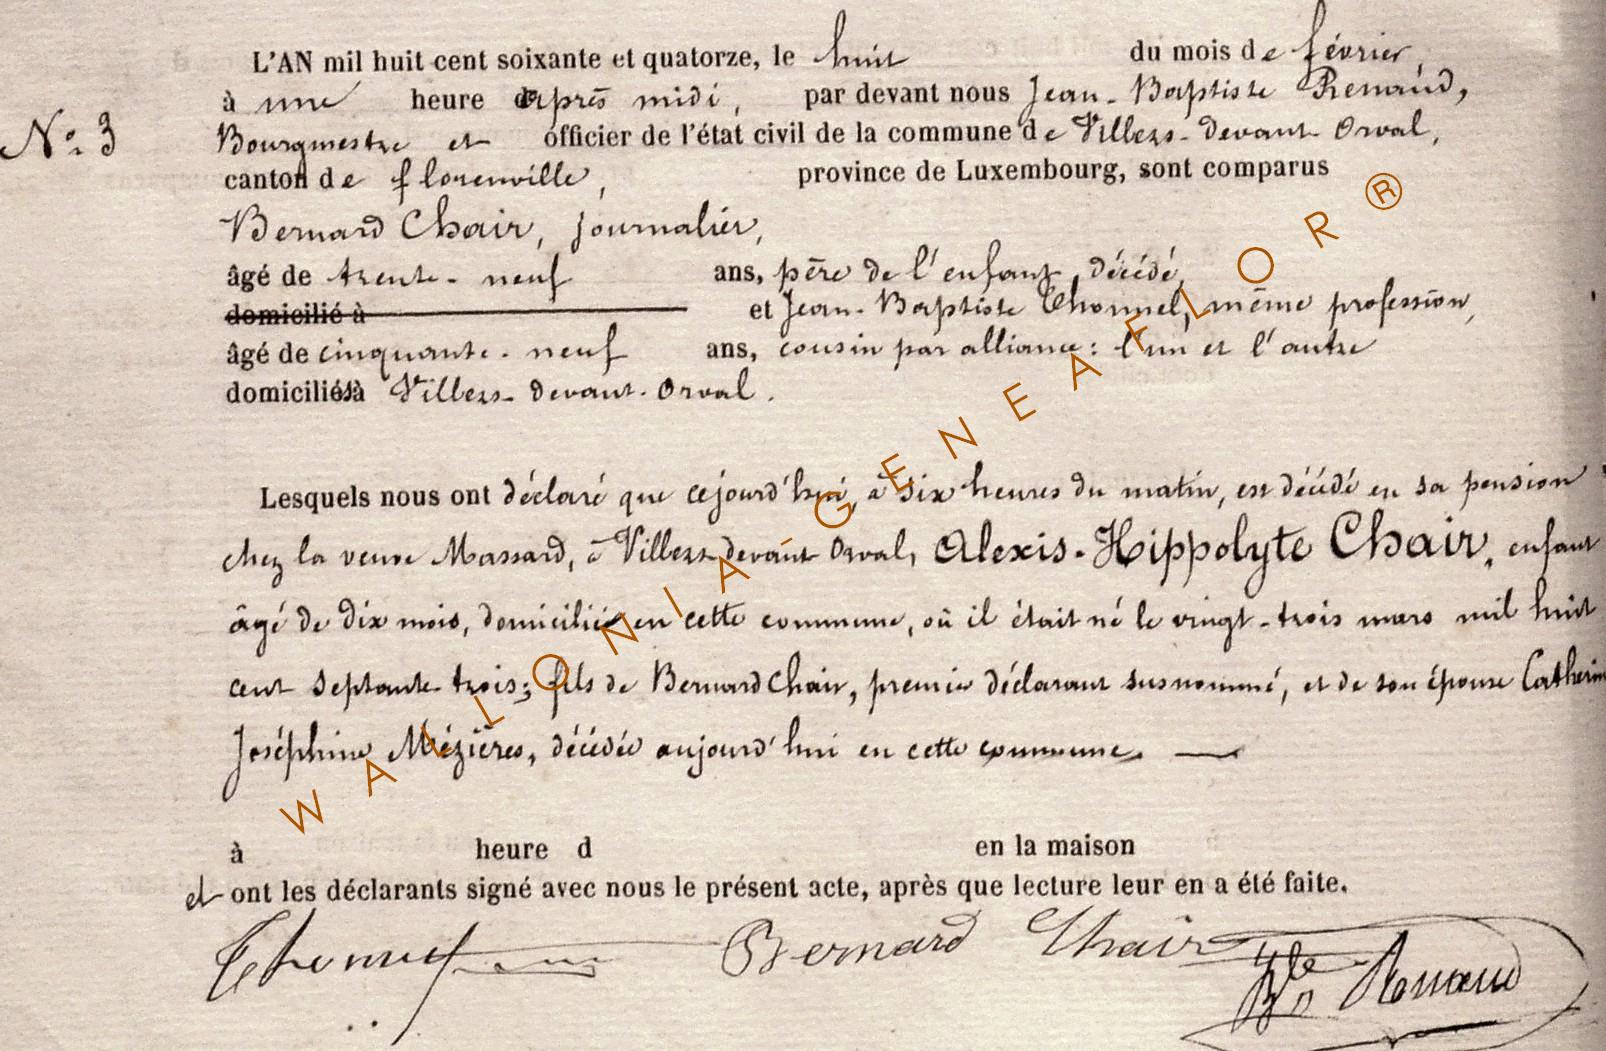 L'AN mil huit cent soixante et quatorze, le huit du mois de février,
à une heure après midi, par devant nous Jean-Baptiste Renaud,
N° 3 Bourgmestre et officier de l'état civil de la commune de Villers-devant-Orval,
canton de florenville, province de Luxembourg, sont comparus
Bernard Chair, journalier,
âgé de trente-neuf ans, père de l'enfant décédé,
domicilié à et Jean-Baptiste Thonnel, même profession,
âgé de cinquante-neuf ans, cousin par alliance: l'un et l'autre
domiciliés à Villers-devant-Orval.
Lesquels nous ont déclaré que cejourd'hui, à six heures du matin, est décédé en sa pension
chez la veuve Massard, à Villers-devant-Orval, Alexis-Hippolyte Chair, enfant
âgé de dix mois, domicilié en cette commune, où il était né le vingt-trois mars mil huit
cent septante trois; fils de Bernard Chair, premier déclarant susnommé, et de son épouse Catherin
Joséphine Mézières, décédée aujourd'hui en cette commune.
à heure d en la maison
et ont les déclarants signé avec nous le présent acte, après que lecture leur en a été faite.
Bernard Chair
WALLONIA GENEAFLOR ®